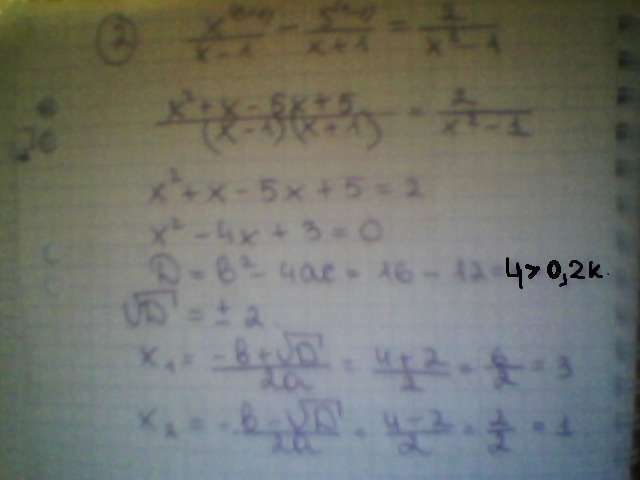 ② x^(x+1)/(x-1) - 5^(x-1)/(x+1) = 2/(x²-1)
(x²+x-5x+5)/((x-1)(x+1)) = 2/(x²-1)
x²+x-5x+5=2
x²-4x+3=0
D = b²-4ac = 16-12 = 4>0,2к.
√D = ±2
x₁ = (-b+√D)/2a = (4+2)/2 = 6/2 = 3
x₂ = (-b-√D)/2a = (4-2)/2 = 2/2 = 1